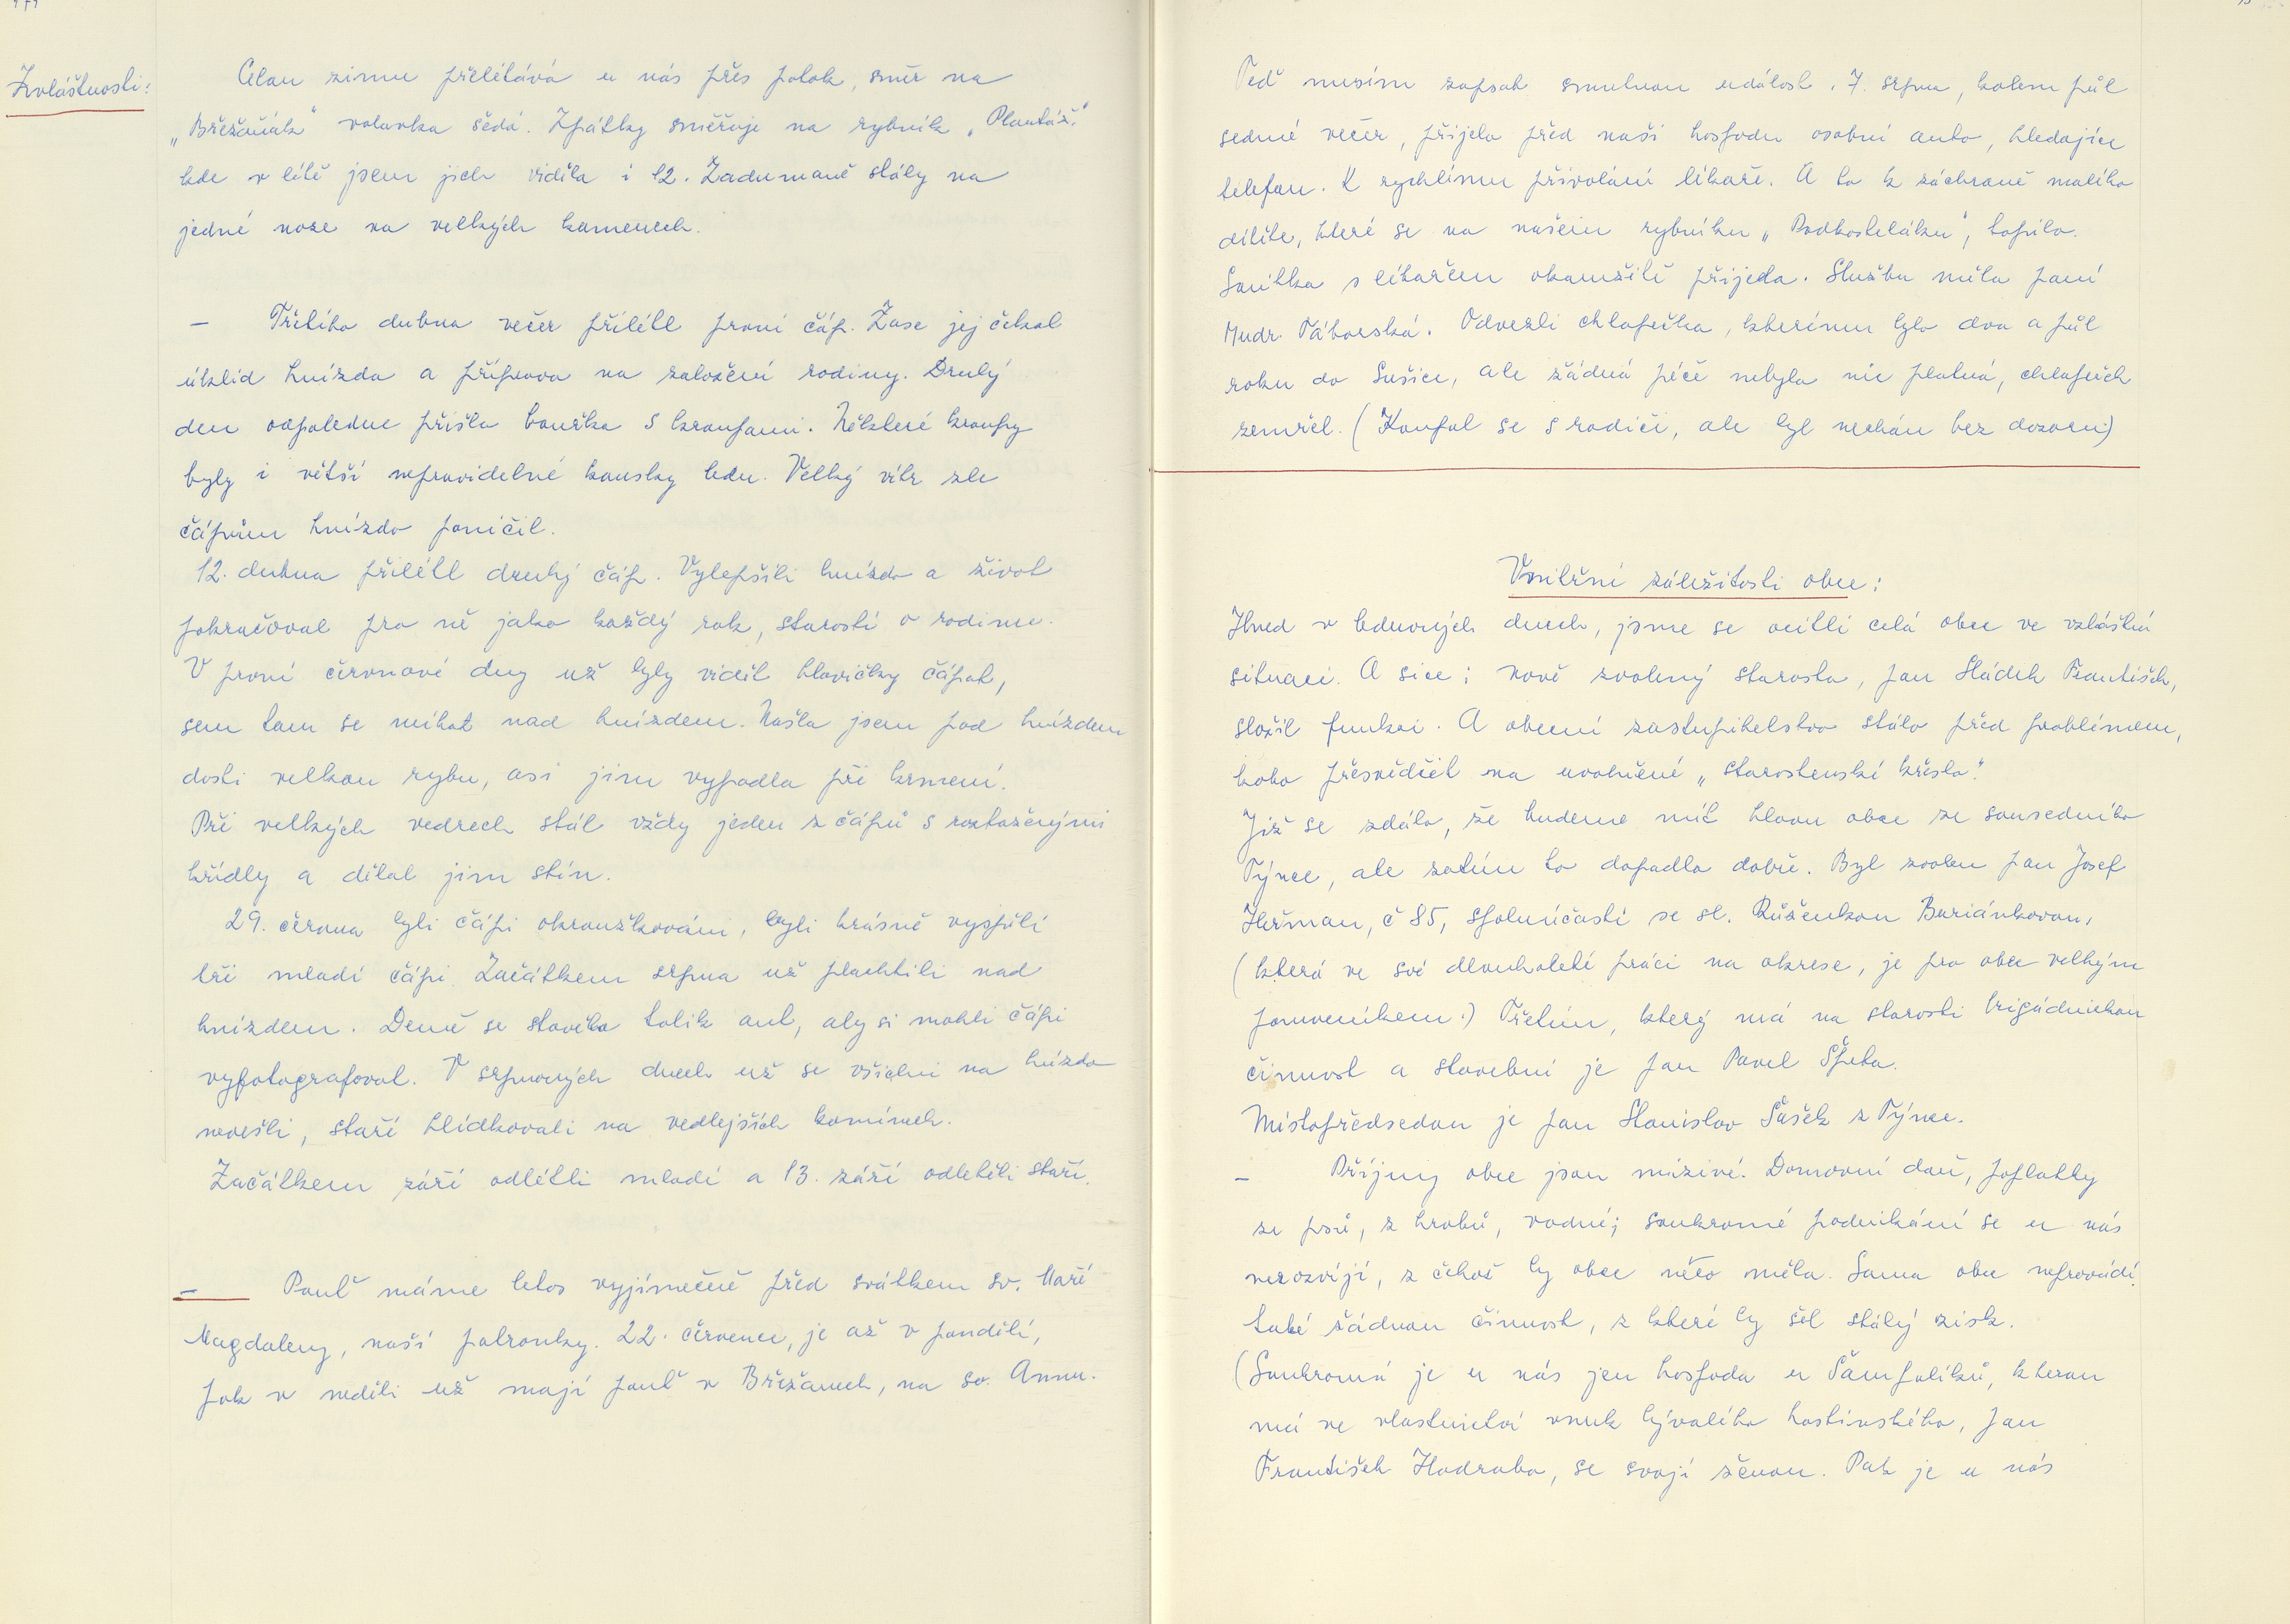 Zvláštnosti:
Celou zimu přelétává u nás přes potok, směr na
„Břežaňák" volavka šedá. Zpátky směřuje na rybník „Plantáž."
kde v létě jsem jich viděla i 12. Zadumaně stály na
jedné noze na velkých kamenech.
— Třetího dubna večer přilétl první čáp. Zase jej čekal
úklid hnízda a příprava na založení rodiny. Druhý
den odpoledne přišla bouřka s kroupami. Některé kroupy
byly i větší nepravidelné kousky ledu. Velký vítr zle
čápům hnízdo poničil.
12. dubna přilétl druhý čáp. Vylepšili hnízdo a život
pokračoval pro ně jako každý rok, starostí o rodinu.
V první červnové dny už byly vidět hlavičky čápat,
sem tam se mihat nad hnízdem. Našla jsem pod hnízdem
dosti velkou rybu, asi jim vypadla při krmení.
Při velkých vedrech stál vždy jeden z čápů s roztaženými
křídly a dělal jim stín.
29. června byli čápi okroužkováni, byli krásně vyspělí
tři mladí čápi. Začátkem srpna už plachtili nad
hnízdem. Denně se stavělo tolik aut, aby si mohli čápi
vyfotografovat. V srpnových dnech už se všichni na hnízdo
nevešli, staří hlídkovali na vedlejších komínech.
Začátkem září odlétli mladí a 13. září odletěli staří.
— Pouť máme letos vyjímečně před svátkem sv. Maří
Magdaleny, naší patronky. 22. července, je až v pondělí,
pak v neděli už mají pouť v Břežanech, na sv. Annu.
Teď musím zapsat smutnou událost. 7. srpna, kolem půl
sedmé večer, přijelo před naši hospodu osobní auto, hledajíce
telefon. K rychlému přivolání lékaře. A to k záchraně malého
dítěte, které se na našem rybníku „Podkosteláku", topilo.
Sanitka s lékařem okamžitě přijela. Službu měla paní
Mudr. Táborská. Odvezli chlapečka, kterému bylo dva a půl
roku do Sušice, ale žádná péče nebyla nic platná, chlapeček
zemřel. (Koupal se s rodiči, ale byl nechán bez dozoru)
Vnitřní záležitosti obce:
Ihned v lednových dnech, jsme se ocitli celá obec ve vzláštní
situaci. A sice: nově zvolený starosta, pan Sládek František,
složil funkci. A obecní zastupitelstvo stálo před problémem,
koho přesvědčit na uvolněné „starostenské křeslo."
Již se zdálo, že budeme mít hlavu obce ze sousedního
Týnce, ale zatím to dopadlo dobře. Byl zvolen pan Josef
Heřman, č 85, spoluúčastí se sl. Růženkou Buriánkovou,
(která ve své dlouholeté práci na okrese, je pro obec velkým
pomocníkem.) Třetím, který má na starosti brigádnickou
činnost a stavební je pan Pavel Šheta.
Místopředsedou je pan Stanislav Šašek z Týnce.
— Příjmy obce jsou mizivé. Domovní daň, poplatky
ze psů, z hrobů, vodné; soukromé podnikání se u nás
nerozvíjí, z čehož by obec něco měla. Sama obec neprovádí
také žádnou činnost, z které by šel stálý zisk.
(Soukromá je u nás jen hospoda u Šampalíků, kterou
má ve vlastnictví vnuk bývalého hostinského, pan
František Hodraba, se svojí ženou. Pak je u nás